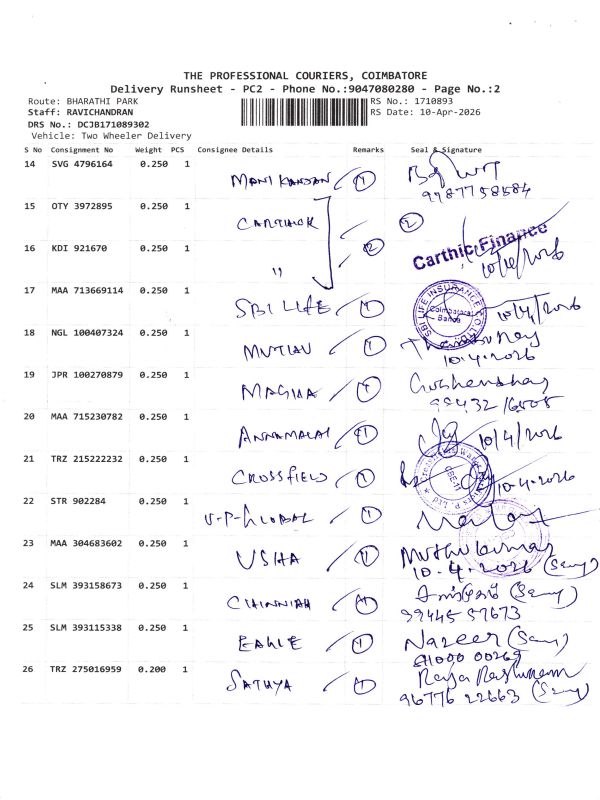 THE PROFESSIONAL COURIERS, COIMBATORE
Delivery Runsheet - PC2 - Phone No.:9047080280 - Page No.:2
Route: BHARATHI PARK
RS No.: 1710893
Staff: RAVICHANDRAN
RS Date: 10-Apr-2026
DRS No.: DCJB171089302
Vehicle: Two Wheeler Delivery
S No Consignment No Weight PCS Consignee Details Remarks Seal & Signature
14 SVG 4796164 0.250 1
MANIKANDAN 1
9987758584
15 OTY 3972895 0.250 1
CARTHICK 2
16 KDI 921670 0.250 1
" 2
Carthic Finance
10/4/2026
17 MAA 713669114 0.250 1
SBI LIFE 1
SBI LIFE INSURANCE CO. LTD.
Coimbatore
10/4/2026
18 NGL 100407324 0.250 1
1
10.4.2026
19 JPR 100270879 0.250 1
MAGMA 1
99432 16505
20 MAA 715230782 0.250 1
ANNAMALAI 1
10/4/2026
21 TRZ 215222232 0.250 1
CROSSFIELD 1
CBE-11
10.4.2026
22 STR 902284 0.250 1
V-P-GLOBAL 1
23 MAA 304683602 0.250 1
USHA 1
Muthukumar
10.4.2026
24 SLM 393158673 0.250 1
CHINNIAH 1
99445 97673
25 SLM 393115338 0.250 1
EAGLE 1
Nazeer
26 TRZ 275016959 0.200 1
SATHYA 1
96776 22663